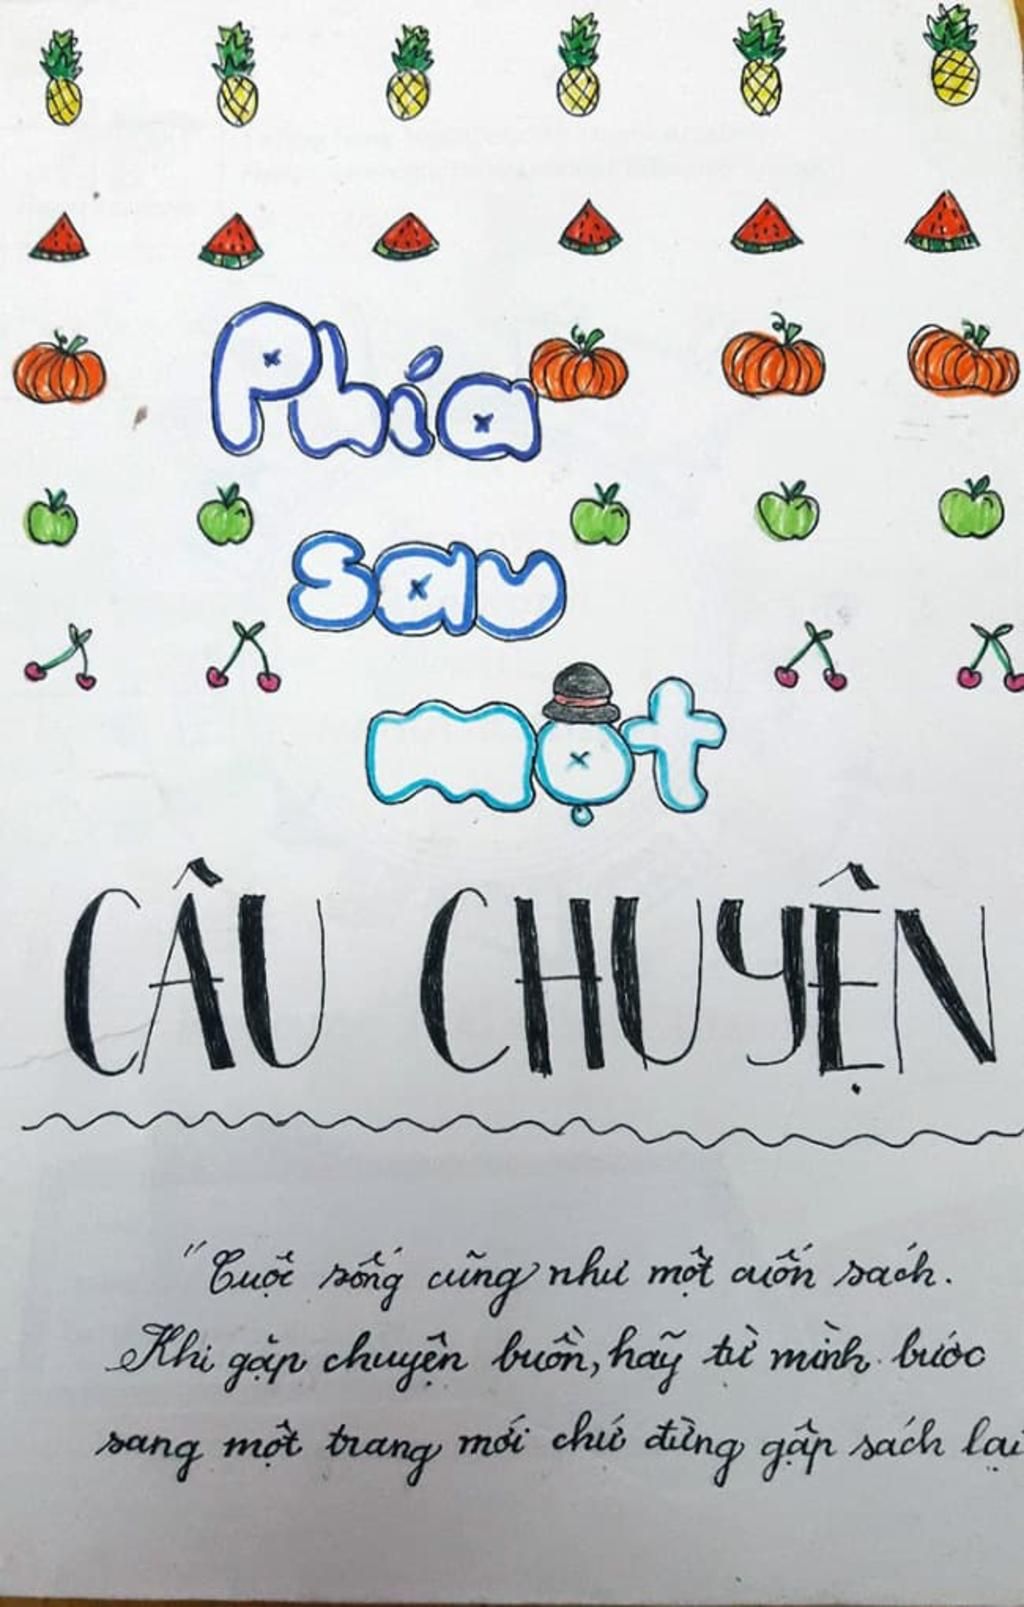 Phía
sau
một
CÂU CHUYỆN
"Cuộc sống cũng như một cuốn sách.
Khi gặp chuyện buồn, hãy tự mình bước
sang một trang mới chứ đừng gập sách lại